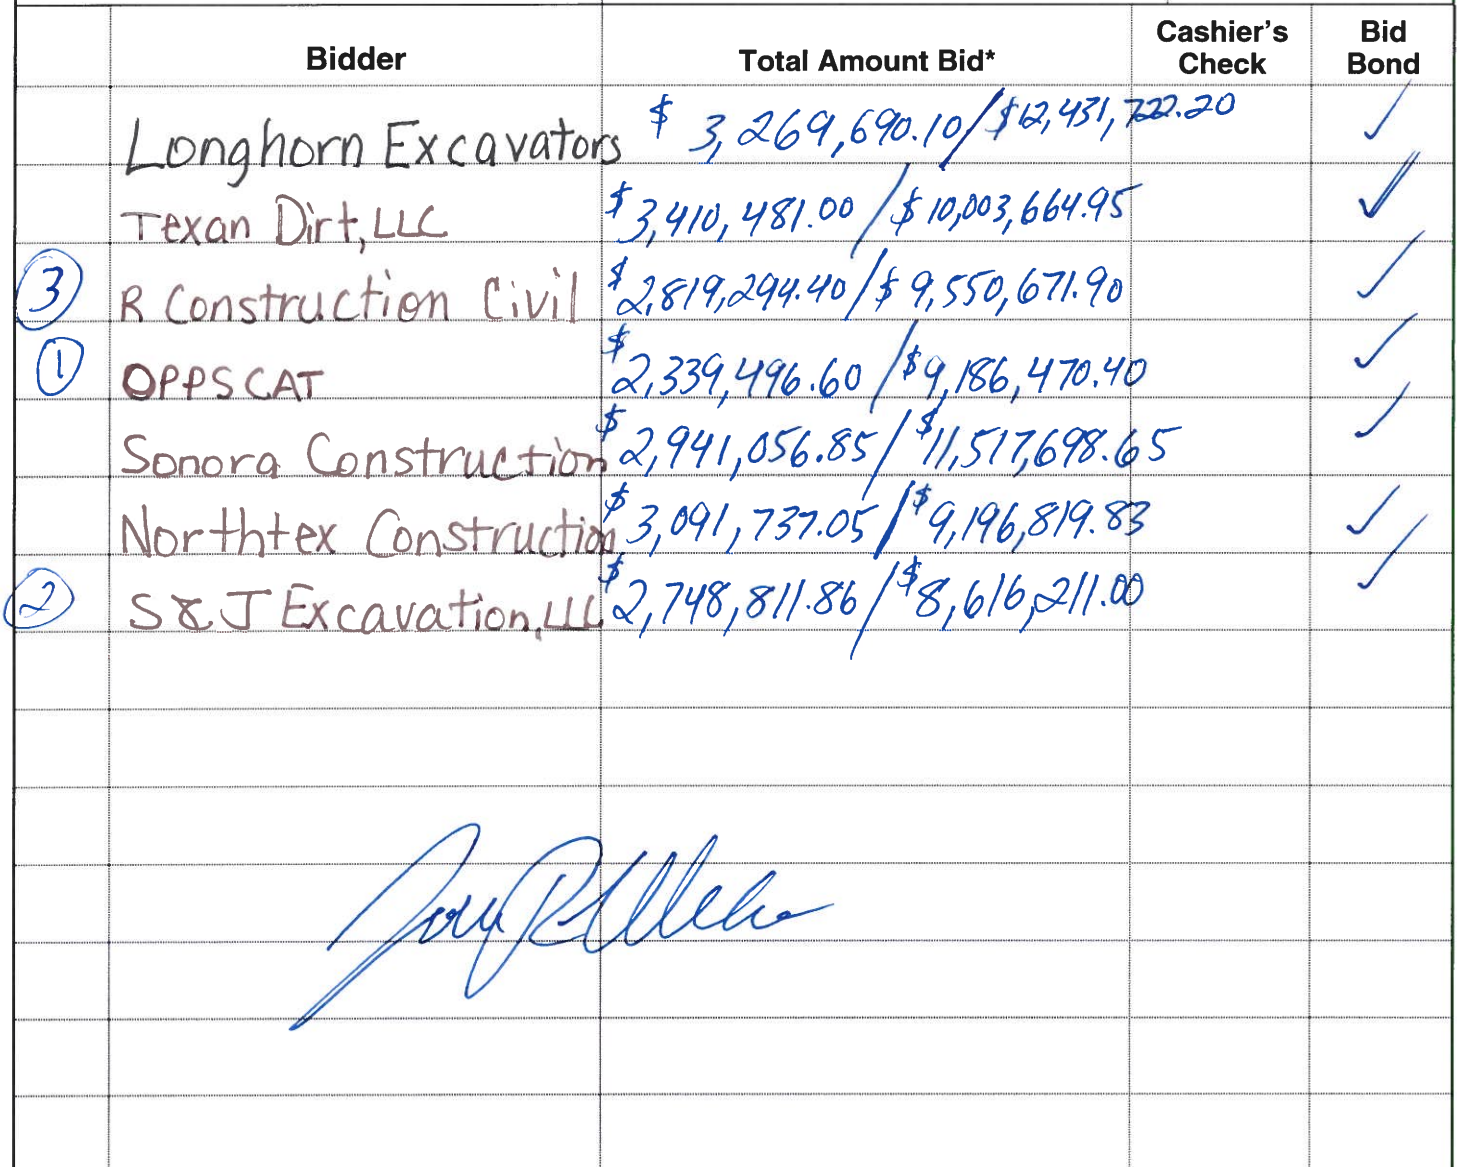 Bidder Total Amount Bid* Cashier's Check Bid Bond
Longhorn Excavators $ 3,269,690.10/$12,431,722.20 ✓
Texan Dirt, LLC $3,410,481.00 / $10,003,664.95 ✓
③ R Construction Civil $2,819,294.40/$9,550,671.90 ✓
① OPPSCAT $2,339,496.60 /$9,186,470.40 ✓
Sonora Construction $2,941,056.85/ $11,517,698.65 ✓
Northtex Construction $3,091,737.05 /$9,196,819.83 ✓
② S & J Excavation, LLC $2,748,811.86 /$8,616,211.00 ✓